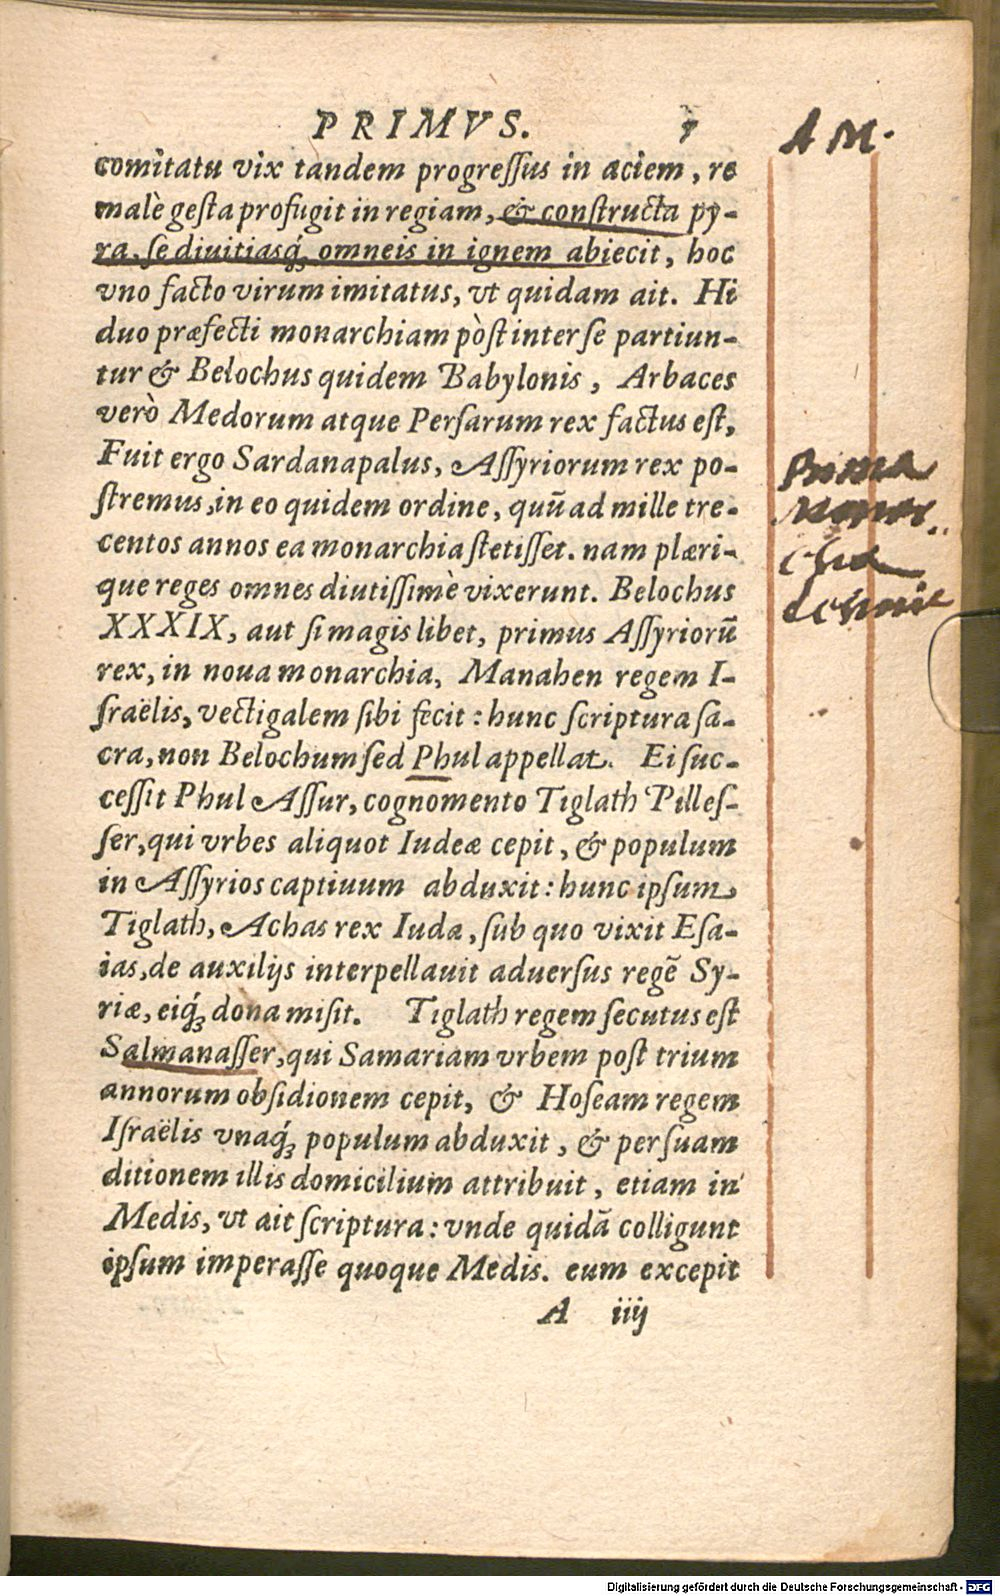 PRIMVS. 7
A M.
comitatu vix tandem progreſſus in aciem, re
malè geſta profugit in regiam, & conſtructa py-
ra, ſe diuitiasq́; omneis in ignem abiecit, hoc
vno facto virum imitatus, vt quidam ait. Hi
duo præfecti monarchiam pòſt inter ſe partiun-
tur & Belochus quidem Babylonis, Arbaces
verò Medorum atque Perſarum rex factus eſt,
Fuit ergo Sardanapalus, Aſſyriorum rex po-
ſtremus, in eo quidem ordine, quũ ad mille tre-
centos annos ea monarchia ſtetiſſet. nam plæri-
que reges omnes diutiſſimè vixerunt. Belochus
XXXIX, aut ſi magis libet, primus Aſſyriorũ
rex, in noua monarchia, Manahen regem I-
ſraëlis, vectigalem ſibi fecit : hunc ſcriptura ſa-
cra, non Belochum ſed Phul appellat. Ei ſuc-
ceſſit Phul Aſſur, cognomento Tiglath Pilleſ-
ſer, qui vrbes aliquot Iudeæ cepit, & populum
in Aſſyrios captiuum abduxit : hunc ipſum
Tiglath, Achas rex Iuda, ſub quo vixit Eſa-
ias, de auxilijs interpellauit aduerſus regẽ Sy-
riæ, eiq́; dona miſit. Tiglath regem ſecutus eſt
Salmanaſſer, qui Samariam vrbem poſt trium
annorum obſidionem cepit, & Hoſeam regem
Iſraëlis vnaq́; populum abduxit, & per ſuam
ditionem illis domicilium attribuit, etiam in
Medis, vt ait ſcriptura : vnde quidã colligunt
ipſum imperaſſe quoque Medis. eum excepit
A iiij
Digitalisierung gefördert durch die Deutsche Forschungsgemeinschaft - DFG